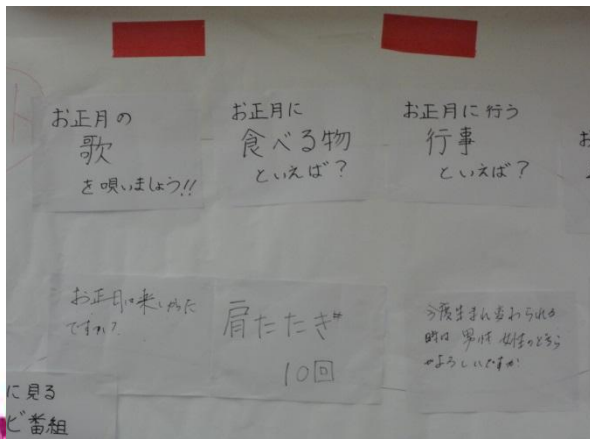 お正月の
歌
を唄いましょう!!
お正月に
食べる物
といえば?
お正月に行う
行事
といえば?
お
お正月は楽しかった
ですか?
肩たたき
10回
今度生まれ変わられる
時は 男性 女性のどちら
がよろしいですか
に見る
ビ番組